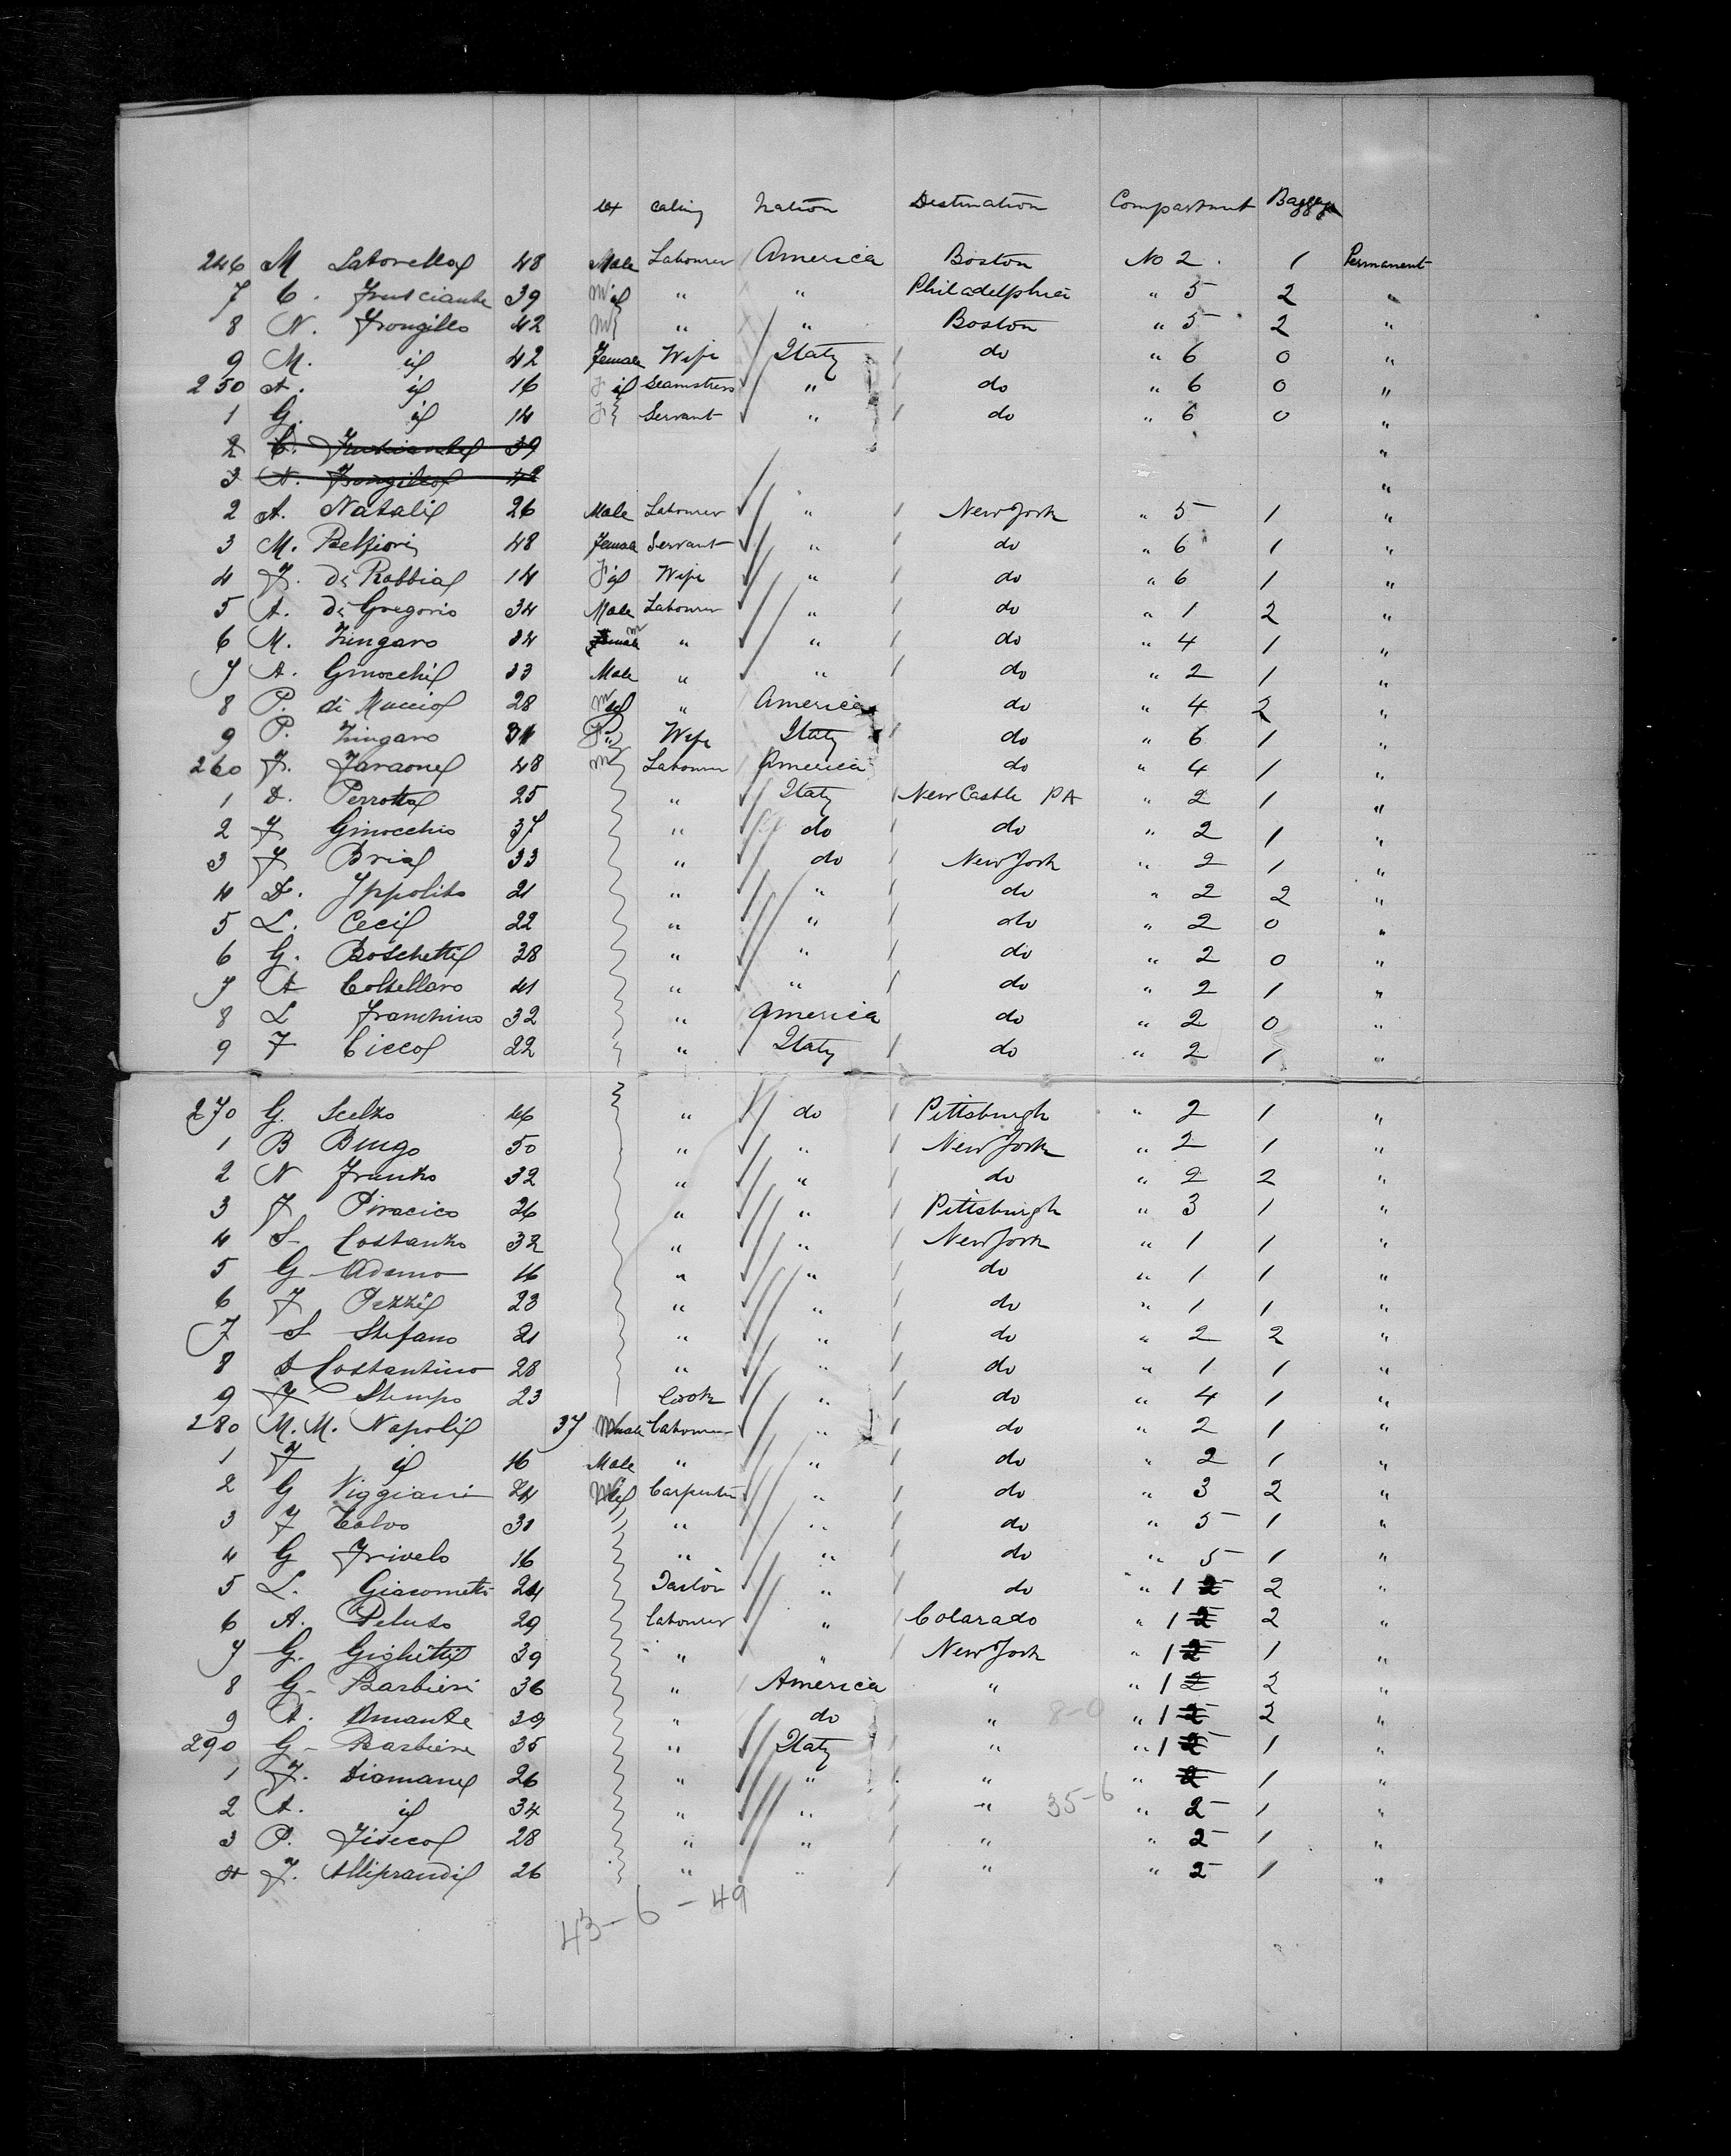 sex caling Nation Destination Compartment Baggage
246 M Latorella 48 Male Labourer America Boston No 2 1 Permanent
7 C. Frusciante 39 M id " " Philadelphia " 5 2 "
8 N. Frongillo 42 M " " Boston " 5 2 "
9 M. id 42 Female Wife Italy do " 6 0 "
250 A. id 16 F id Seamstress " do " 6 0 "
1 G. id 14 F Servant " do " 6 0 "
2 C. Frusciante 39 "
3 N. Frongillo 42 "
2 A. Natali 26 Male Labourer " New York " 5 1 "
3 M. Belfiori 48 Female Servant " do " 6 1 "
4 F. Di Robbia 14 F id Wife " do " 6 1 "
5 A. Di Gregorio 34 Male Labourer " do " 1 2 "
6 M. Zingaro 34 Female M " " do " 4 1 "
7 A. Ginocchi 33 Male " " do " 2 1 "
8 P. di Muccio 28 M id " America do " 4 2 "
9 P. Zingaro 31 F " Wife Italy do " 6 1 "
260 F. Faraone 48 M Labourer America do " 4 1 "
1 D. Perrotta 25 " Italy New Castle PA " 2 1 "
2 F Ginocchio 37 " do do " 2 1 "
3 F Bria 33 " do New York " 2 1 "
4 D. Ippolito 21 " " do " 2 2 "
5 L. Ceci 22 " " do " 2 0 "
6 G. Boschetti 38 " " do " 2 0 "
7 A Coltellaro 41 " " do " 2 1 "
8 L Franchino 32 " America do " 2 0 "
9 F Cicco 22 " Italy do " 2 1 "
270 G. Scelzo 46 " do Pittsburgh " 2 1 "
1 B Bingo 50 " " New York " 2 1 "
2 N Franzo 32 " " do " 2 2 "
3 F Piracico 26 " " Pittsburgh " 3 1 "
4 S Costanzo 32 " " New York " 1 1 "
5 G Adamo 16 " " do " 1 1 "
6 F Pezzi 23 " " do " 1 1 "
7 S Stefano 21 " " do " 2 2 "
8 D Costantino 28 " " do " 1 1 "
9 F Stempo 23 Cook " do " 4 1 "
280 M. M. Napoli 37 Male Labourer " do " 2 1 "
1 F id 16 Male " " do " 2 1 "
2 G Viggiani 24 M id Carpenter " do " 3 2 "
3 F Calvo 31 " " do " 5 1 "
4 G Frivelo 16 " " do " 5 1 "
5 L. Giacometti 24 Tailor " do " 1 2 2 "
6 A. Peluso 29 Labourer " Colarado " 1 2 2 "
7 G. Gighetti 39 " " New York " 1 2 1 "
8 G. Barbieri 36 " America " " 1 2 2 "
9 A. Amante 39 " do " 8-0 " 1 2 2 "
290 G Barbiere 35 " Italy " " 1 2 1 "
1 F. Diamane 26 " " " " 2 1 "
2 A. id 34 " " " 35-6 " 2 1 "
3 P. Fiseco 28 " " " " 2 1 "
4 F. Alliprandi 26 " " " " 2 1 "
43-6-49